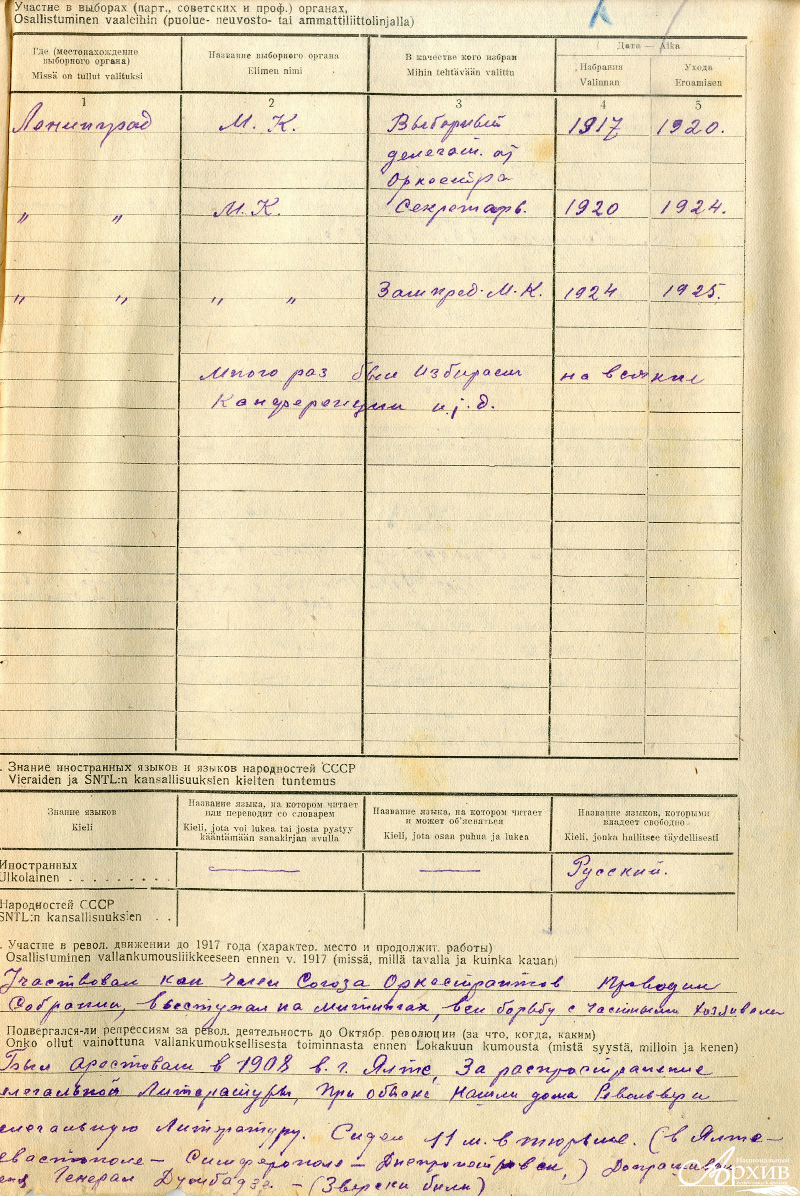 Участие в выборах (парт., советских и проф.) органах,
Osallistuminen vaaleihin (puolue- neuvosto- tai ammattiliittolinjalla)
Где (местонахождение выборного органа)
Missä on tullut valituksi
Название выборного органа
Elimen nimi
В качестве кого избран
Mihin tehtävään valittu
Дата — Aika
Избрания
Valinnan
Ухода
Eroamisen
1 2 3 4 5
Ленинград М. К. Выборный 1917 1920.
делегат. от
Оркестра
„ „ М. К. Секретарь. 1920 1924.
„ „ „ „ Зампред. М. К. 1924 1925.
Много раз был избираем на всякие
Канференции и. т. д.
Знание иностранных языков и языков народностей СССР
Vieraiden ja SNTL:n kansallisuuksien kielten tuntemus
Знание языков
Kieli
Название языка, на котором читает или переводит со словарем
Kieli, jota voi lukea tai josta pystyy kääntämään sanakirjan avulla
Название языка, на котором читает и может об'ясняться
Kieli, jota osan puhua ja lukea
Название языков, которыми владеет свободно
Kieli, jonka hallitsee täydellisesti
Иностранных
Ulkolainen . . . . . . . . . Русский.
Народностей СССР
SNTL:n kansallisuuksien . .
. Участие в револ. движении до 1917 года (характер. место и продолжит. работы)
Osallistuminen vallankumousliikkeeseen ennen v. 1917 (missä, millä tavalla ja kuinka kauan)
Участвовал как член Союза Оркестрантов Проводил
Собрании, выступал на митингах, вел борьбу с частными
Подвергался-ли репрессиям за револ. деятельность до Октябр. революции (за что, когда, каким)
Onko ollut vainottuna vallankumouksellisesta toiminnasta ennen Lokakuun kumousta (mistä syystä, milloin ja kenen)
Был арестован в 1908 в. г. Ялте, За распространение
елегальной Литературы, При обыске Нашли дома Револьвер и
елегальную Литературу. Сидел 11 м. в тюрьме. (в Ялте —
евастополе — Симферополе —
Генерал Думбадзе — (Зверски били)
Национальный
Архив